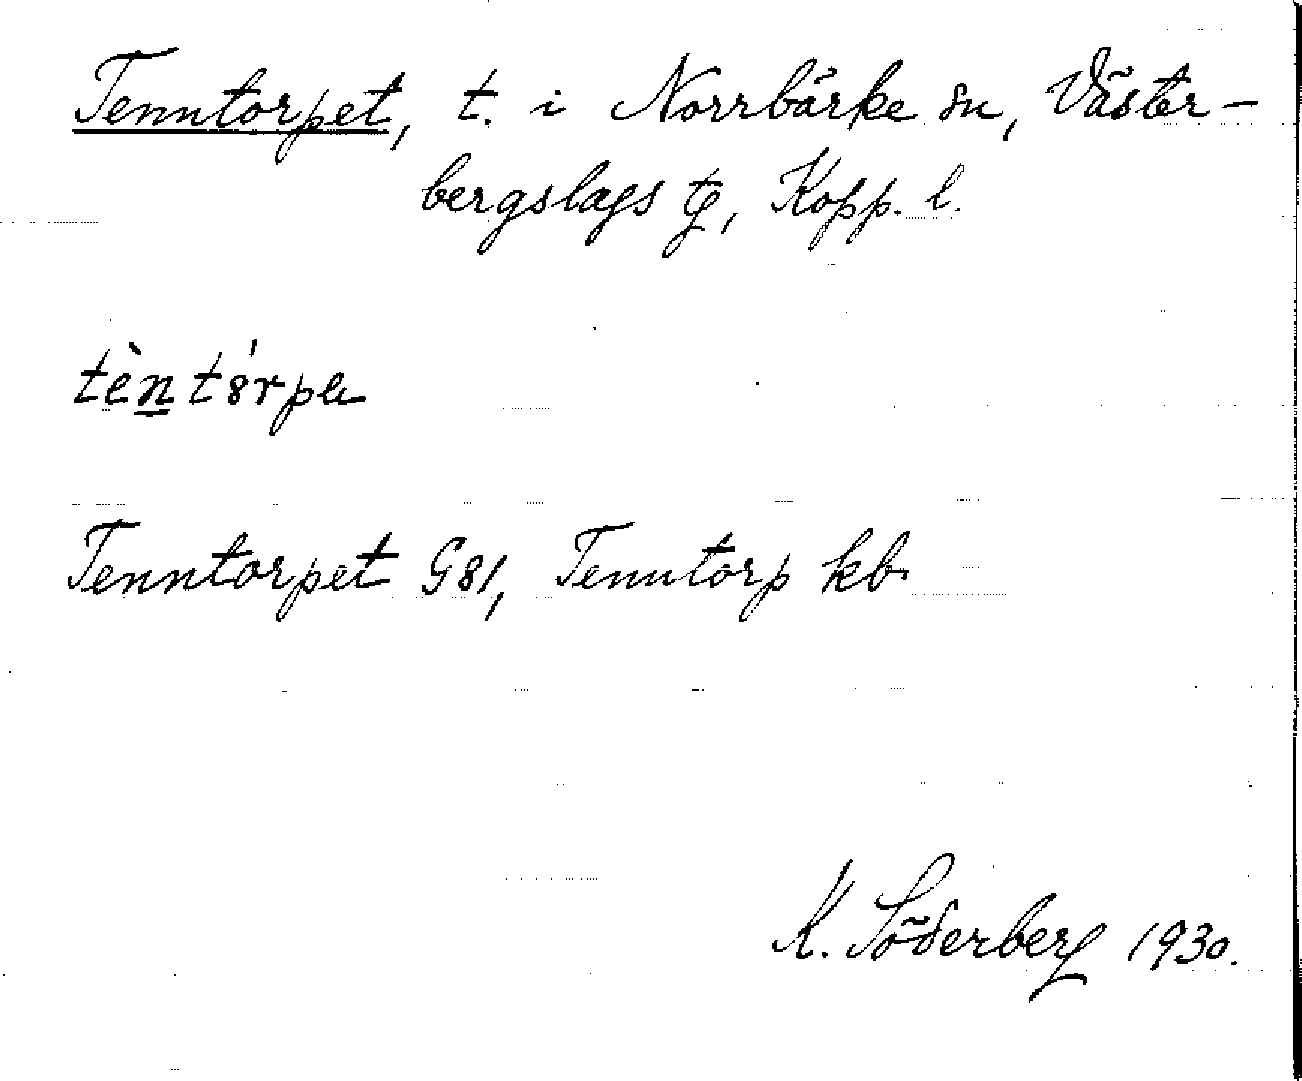 Tenntorpet, t. i Norrbärke sn, Väster-
bergslags tg, Kopp. l.
tènt8́rpa
Tenntorpet G81, Tenntorp kb
K. Söderberg 1930.